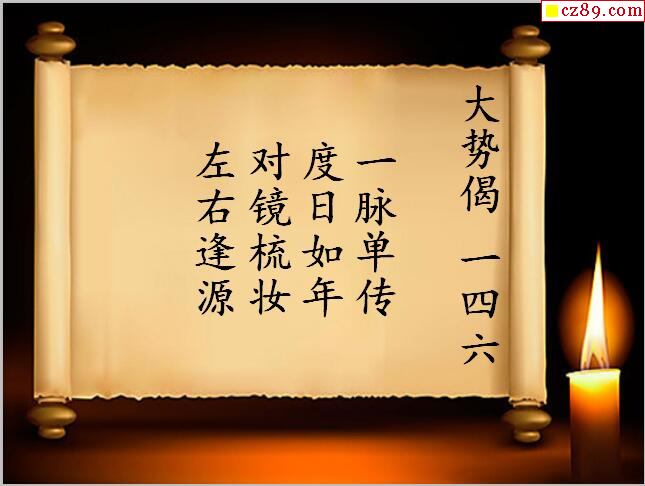 cz89.com
大势偈 一四六
一脉单传
度日如年
对镜梳妆
左右逢源